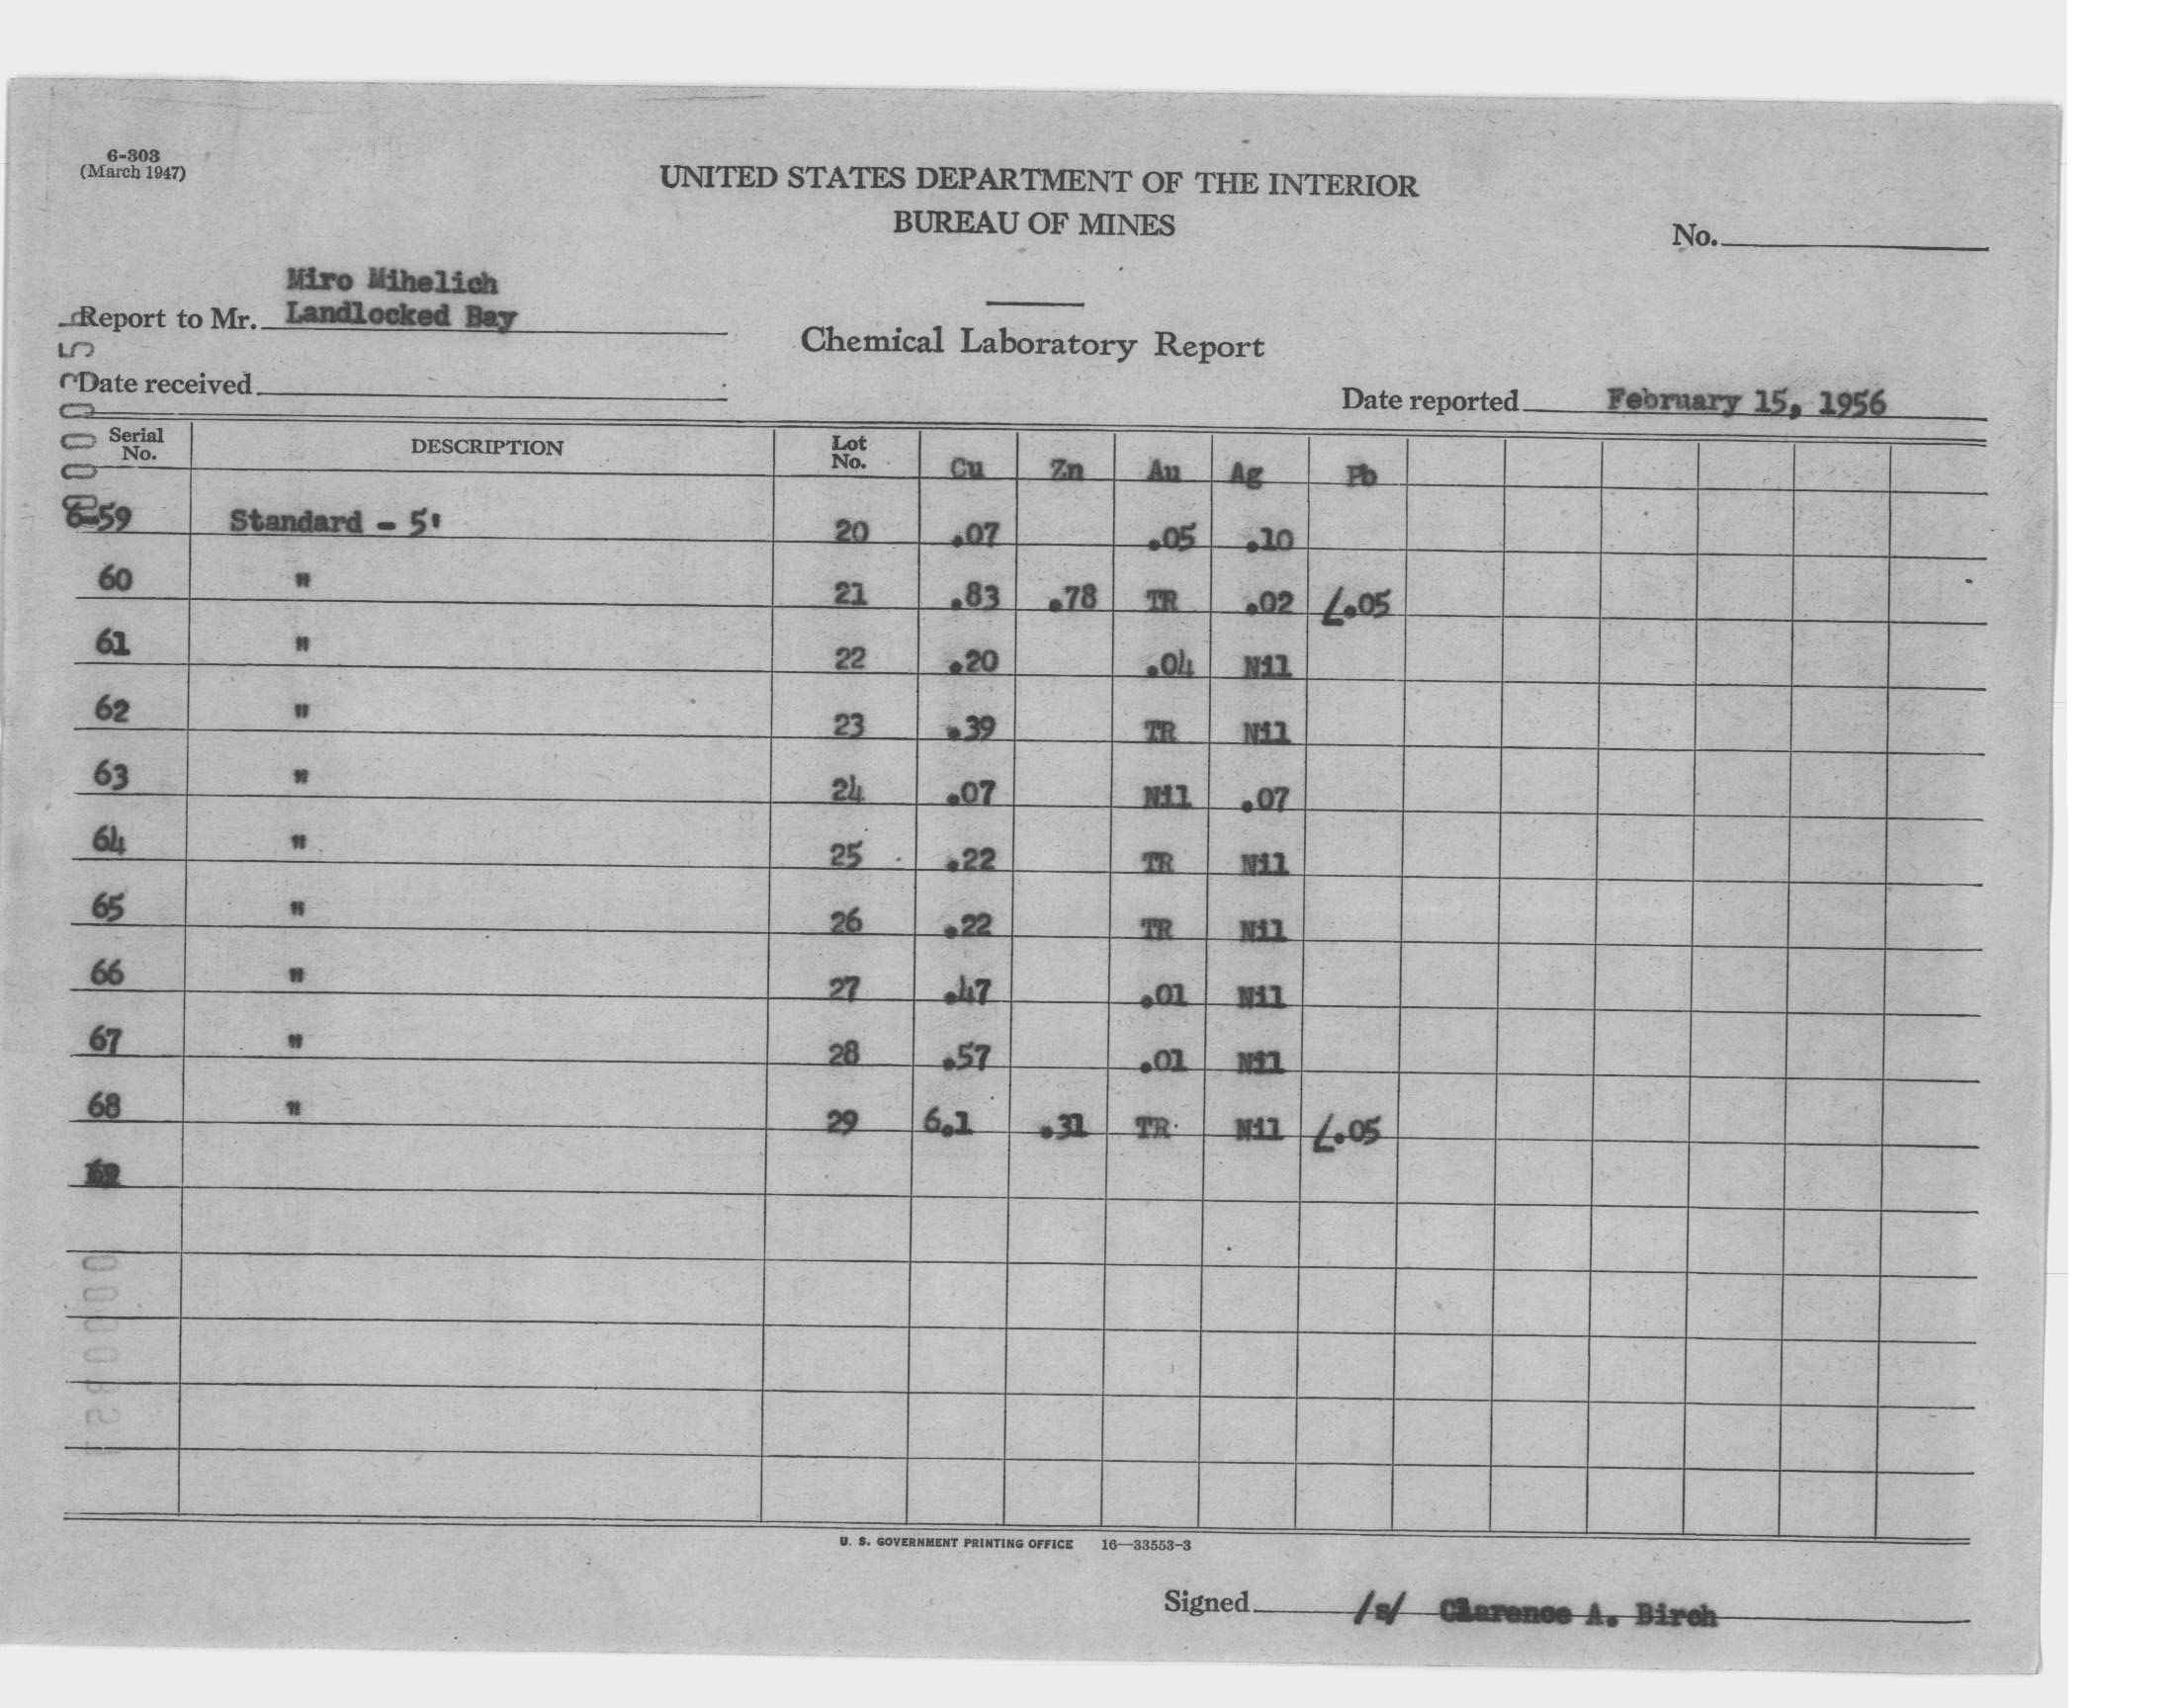 6-303
(March 1947)
UNITED STATES DEPARTMENT OF THE INTERIOR
BUREAU OF MINES
No.
Miro Mihelich
Report to Mr. Landlocked Bay
Chemical Laboratory Report
Date received
Date reported February 15, 1956
Serial No. DESCRIPTION Lot No. Cu Zn Au Ag Pb
6-59 Standard - 5' 20 .07 .05 .10
60 " 21 .83 .78 TR .02 <.05
61 " 22 .20 .04 Nil
62 " 23 .39 TR Nil
63 " 24 .07 Nil .07
64 " 25 .22 TR Nil
65 " 26 .22 TR Nil
66 " 27 .47 .01 Nil
67 " 28 .57 .01 Nil
68 " 29 6.1 .31 TR Nil <.05
U. S. GOVERNMENT PRINTING OFFICE 16—33553-3
Signed /s/ Clarence A. Birch